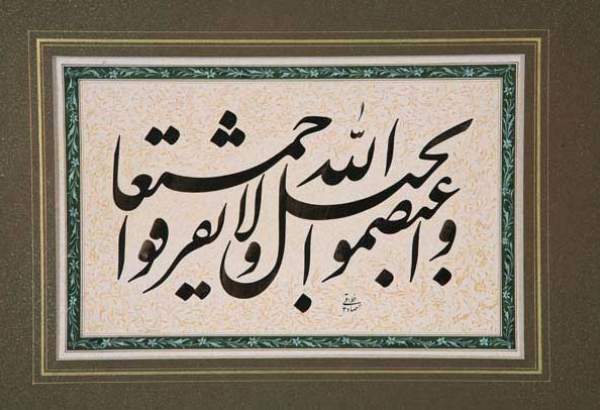 واعتصموا بحبل الله جمیعا ولا تفرقوا